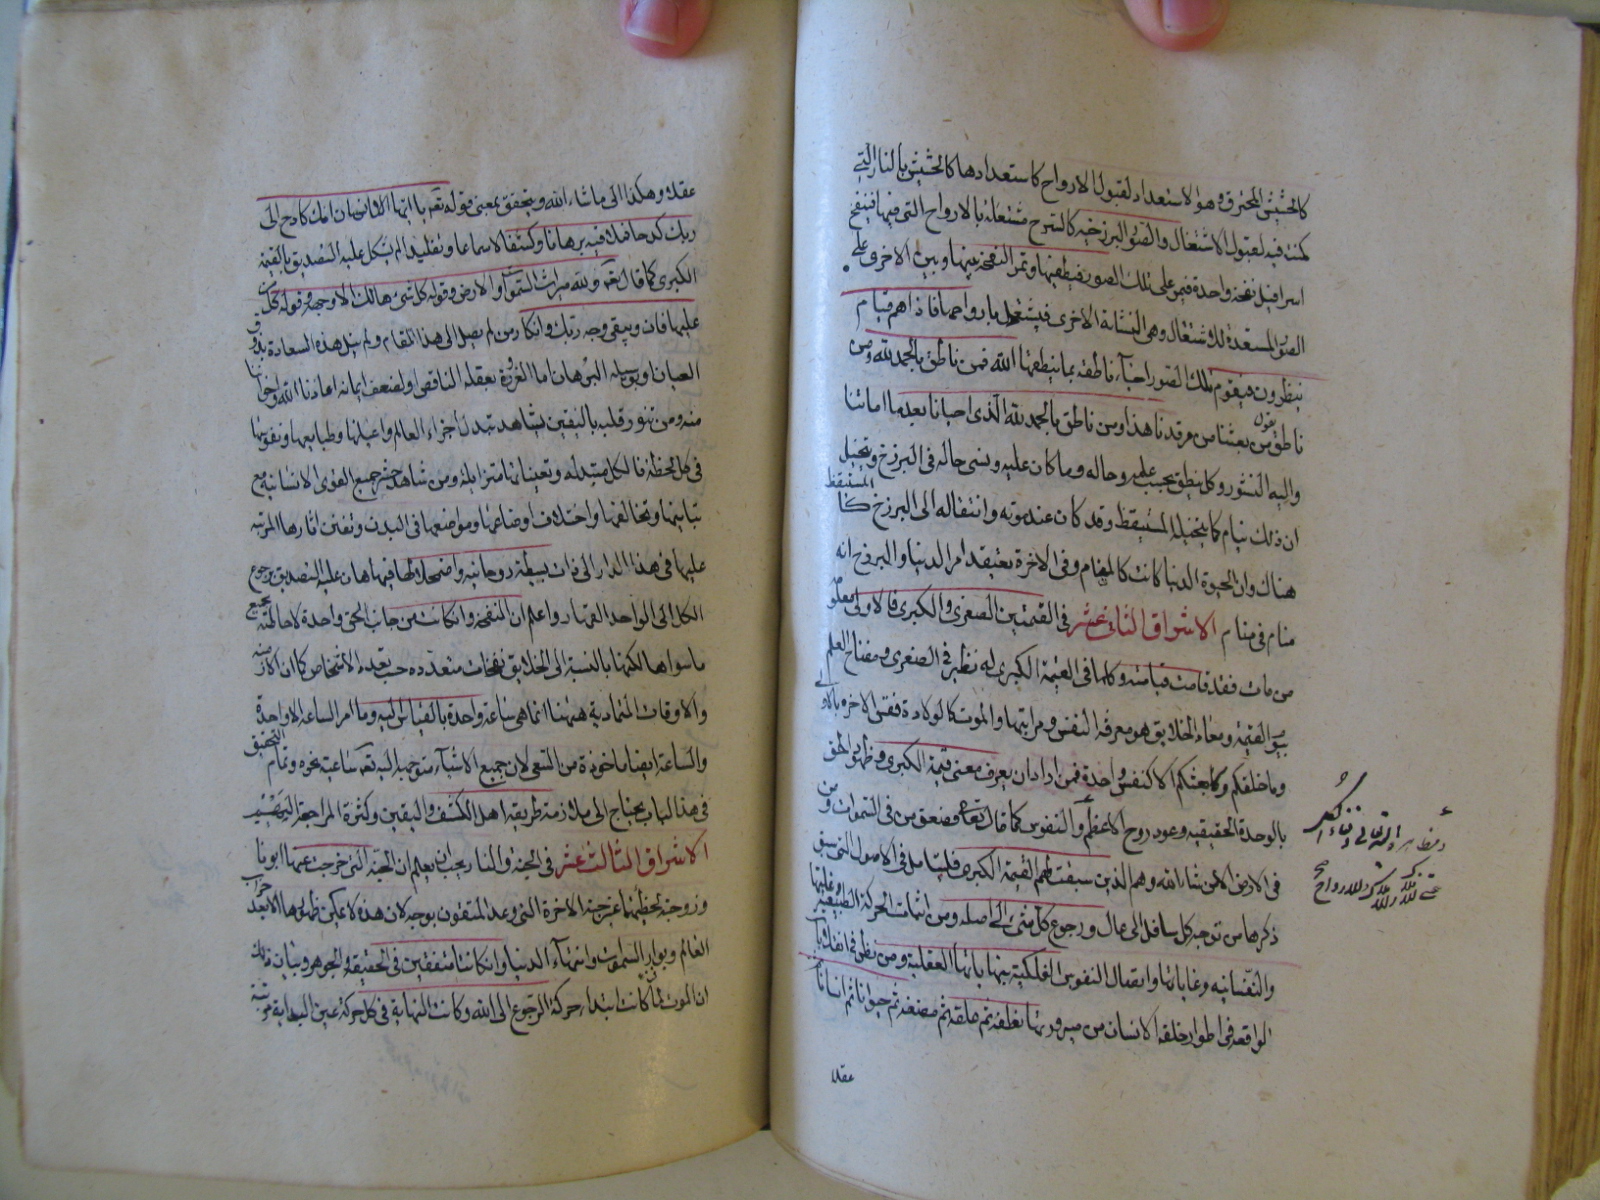 كالحشيش المحترق وهو الاستعداد لقبول الارواح كاستعدادها كالحشيش بالنار التي
كمنت فيه لقبول الاشتعال والصور البرزخية كالسرج مشتعلة بالارواح التي فيها فينفخ
اسرافيل نفخة واحدة فتمر على تلك الصور فيطفيها وتمر النفخة بينها وبين الاخرى على
الصور المستعدة للاشتعال وهي النشأة الاخرى فيشتعل بارواحها فاذا هم قيام
ينظرون فيقوم تلك الصور احياء ناطقة بما ينطقها الله فمن ناطق بالحمد لله ومن
ناطق يقول من بعثنا من مرقدنا هذا ومن ناطق بالحمد لله الذي احيانا بعد ما اماتنا
واليه النشور وكل ينطق بحسب علمه وحاله وما كان عليه ونسى حاله في البرزخ ويتخيل
ان ذلك منام كما يتخيله المستيقظ وقد كان عند موته وانتقاله الى البرزخ كالمستيقظ
هناك وان الحيوة الدنيا كانت كالمنام وفي الاخرة يعتقد امر الدنيا والبرزخ انه
منام في منام الاشراق الثاني عشر في القيمتين الصغرى والكبرى فالاولى معلومة
من مات فقد قامت قيامته وكلما في القيمة الكبرى له نظير في الصغرى ومفتاح العلم
بيوم القيمة ومعاد الخلايق هو معرفة النفس ومراتبها والموت كالولادة فقس الاخرة بالاولى
وما خلقكم ولا بعثكم الا كنفس واحدة فمن اراد ان يعرف معنى قيمة الكبرى وظهور الحق
بالوحدة الحقيقية وعود روح الاعظم والنفوس كما قال تعالى فصعق من في السموات ومن
في الارض الا من شاء الله وهم الذين سبقت لهم القيمة الكبرى فليتامل في الاصول التي سبق
ذكرها من توجه كل سافل الى عال ورجوع كل شيء الى اصله ومن اثبات الحركة الطبيعية
والنفسانية وغاياتها واتصال النفوس الفلكية بنهاياتها العقلية ومن نظر في
الواقعة في اطوار خلقة الانسان من صيرورتها نطفة ثم علقة ثم مضغة ثم حيوانا ثم انسانا
عقلا
عقلا وهكذا الى ما شاء الله ويتحقق بمعنى قوله تعه يا ايها الانسان انك كادح الى
ربك كدحا فملاقيه برهانا وكشفا لا سماعا وتقليدا لم يشكل عليه التصديق بالقيمة
الكبرى كما قال تعه ولله ميراث السموات والارض وقوله كل شئ هالك الا وجهه وقوله كل من
عليها فان ويبقى وجه ربك وانكار من لم يصل الى هذا المقام ولم ينل هذه السعادة بذوق
العيان او بوسيلة البرهان اما لغروره بعقله الناقص او لضعف ايمانه اعاذنا الله واخواننا
منه ومن تنور قلبه باليقين يشاهد تبدل اجزاء العالم واعيانها وطبايعها ونفوسها
في كل لحظة فالكل متبدلة وتعيناتها متزايلة ومن شاهد حشر جميع القوى الانسانية مع
تباينها وتخالفها واختلاف اوضاعها ومواضعها في البدن وتفنن اثارها المترتبة
عليها في هذا الدار الى ذات بسيطة روحانية واضمحلالها فيها هان عليه التصديق برجوع
الكل الى الواحد القهار واعلم ان النفخة وان كانت من جانب الحق واحدة لاحاطته بجميع
ما سواها لكنها بالنسبة الى الخلايق نفخات متعددة حسب تعدد الاشخاص كما ان الازمنة
والاوقات المتمادية ههنا انما هي ساعة واحدة بالقياس اليه وما امر الساعة الا واحدة
والساعة ايضا ماخوذة من السعي لان جميع الاشياء متوجهة اليه تعه ساعية نحوه وتمام التحقيق
في هذا الباب يحتاج الى ملازمة طريقة اهل الكشف واليقين وكثرة المراجعة اليهم
الاشراق الثالث عشر في الجنة والنار يجب ان يعلم ان الجنة التي خرجت عنها ابونا
وزوجته لخطيئتهما غير جنة الاخرة التي وعد المتقون بوجه لان هذه لا يمكن ظهورها الا بعد خراب
العالم وبوار السموات وانتهاء الدنيا وان كانتا متفقتين في الحقيقة والجوهر وبيان ذلك
ان الموت لما كانت ابتداء حركة الرجوع الى الله وكانت النهاية في كل حركة عين البداية مرتبة